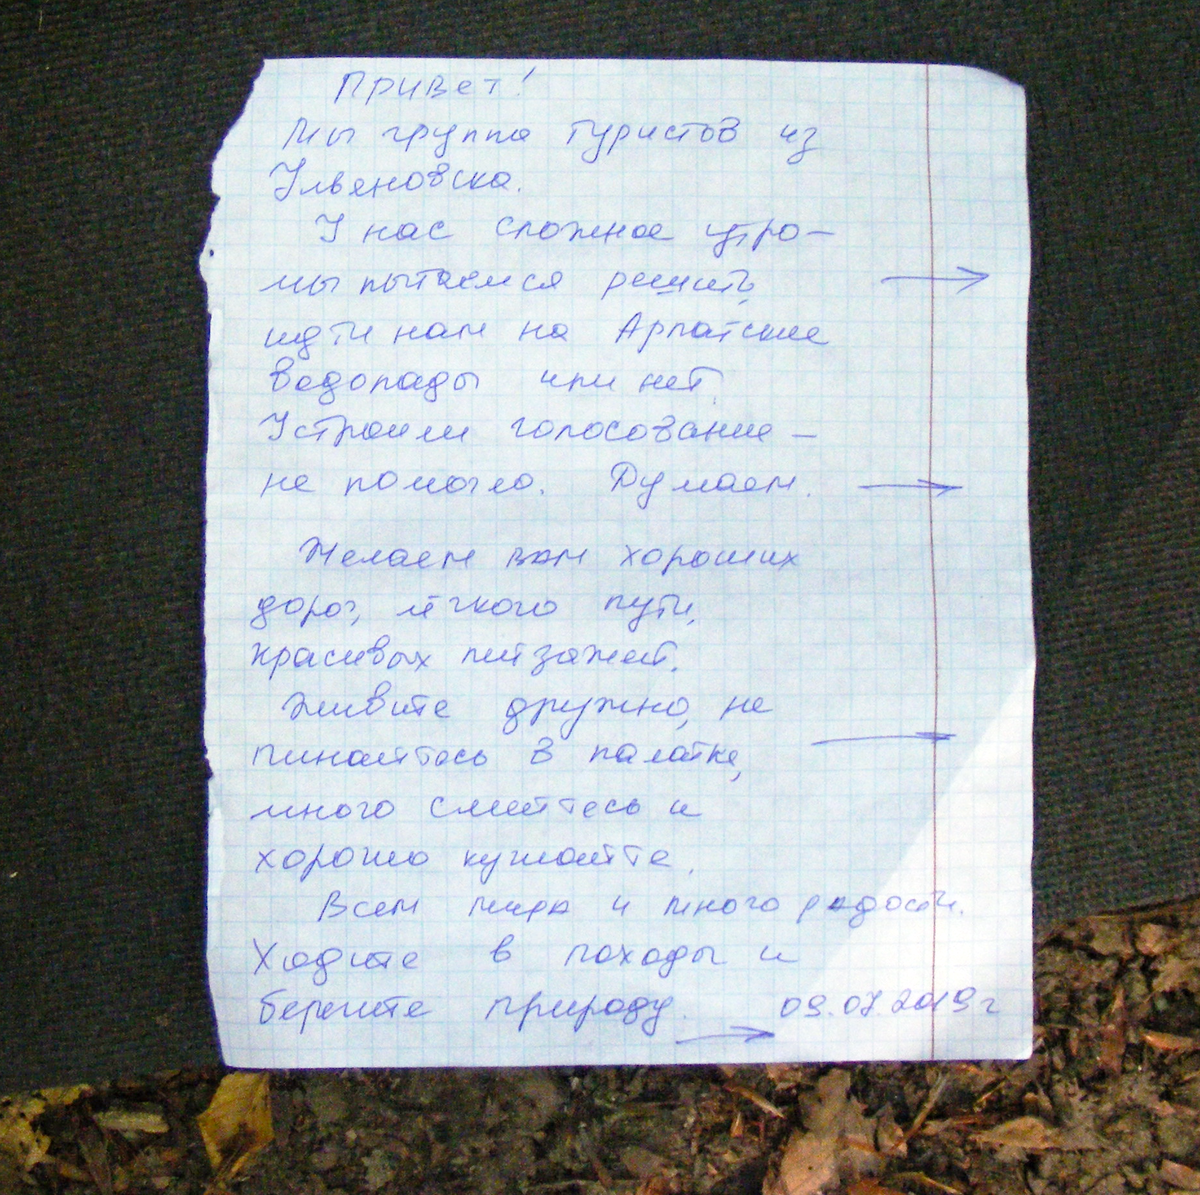 Привет!
Мы группа туристов из
Ульяновска.
У нас сложное утро –
мы пытаемся решить,
идти нам на Арпатские
водопады или нет.
Устроили голосование –
не помогло. Думаем.
Желаем вам хороших
дорог, лёгкого пути,
красивых пейзажей.
Живите дружно, не
пинайтесь в палатке,
много смейтесь и
хорошо кушайте.
Всем мира и много радости.
Ходите в походы и
берегите природу. 09.07.2019 г